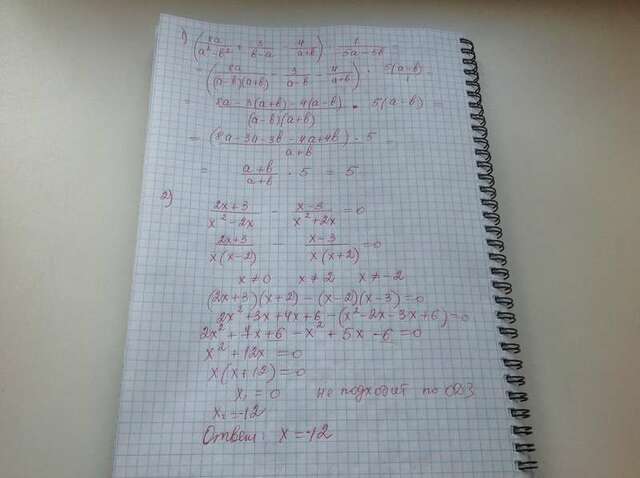 1) (8a/(a²-b²) + 3/(b-a) - 4/(a+b)) : 1/(5a-5b) =
= (8a/((a-b)(a+b)) - 3/(a-b) - 4/(a+b)) · 5(a-b)
= (8a-3(a+b)-4(a-b))/((a-b)(a+b)) · 5(a-b) =
= (8a-3a-3b-4a+4b)/(a+b) · 5 =
= (a+b)/(a+b) · 5 = 5
2) (2x+3)/(x²-2x) - (x-3)/(x²+2x) = 0
(2x+3)/(x(x-2)) - (x-3)/(x(x+2)) = 0
x≠0 x≠2 x≠-2
(2x+3)(x+2)-(x-2)(x-3)=0
2x²+3x+4x+6-(x²-2x-3x+6)=0
2x²+7x+6-x²+5x-6=0
x²+12x=0
x(x+12)=0
x₁=0 не подходит по ОДЗ
x₂=-12
Ответ: x=-12